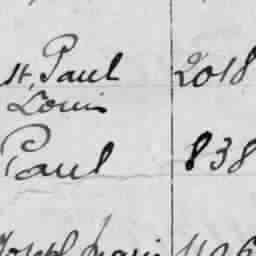 St. Paul 2018
Louis
Paul 838
Joseph Marie 1106